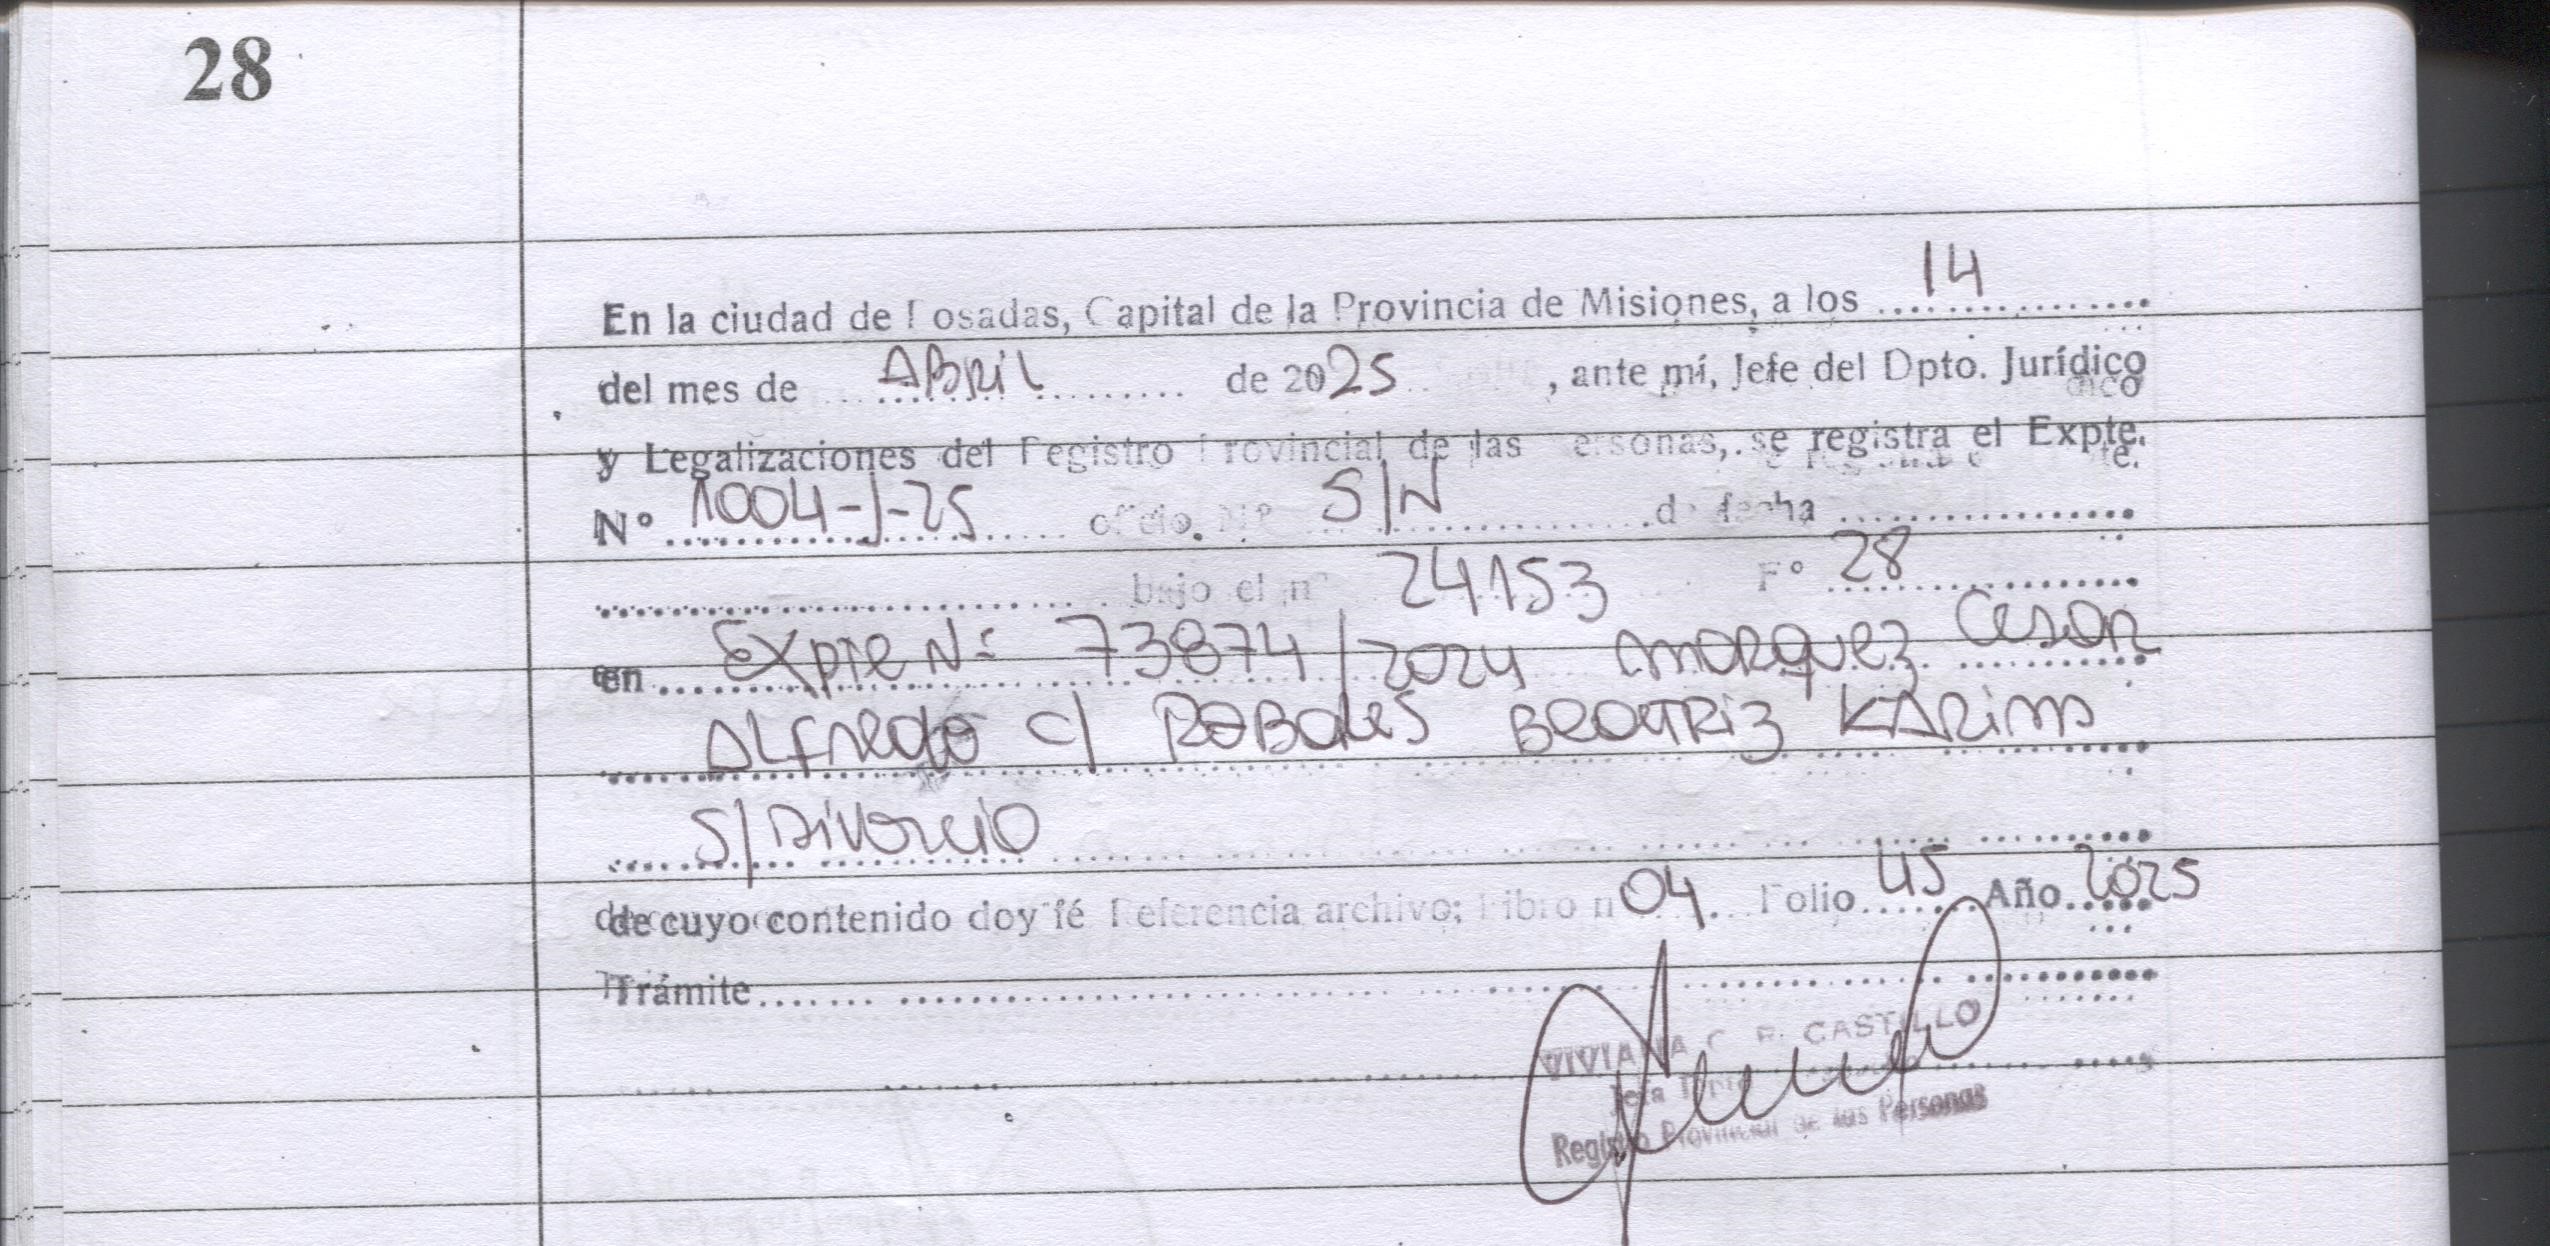 28
En la ciudad de Posadas, Capital de la Provincia de Misiones, a los 14
del mes de Abril de 2025, ante mí, Jefe del Dpto. Jurídico
y Legalizaciones del Registro Provincial de las Personas, se registra el Expte.
Nº 1004-J-25 oficio. Nº S/N de fecha
bajo el nº 24153 Fº 28
en Expte Nº 73874/2024 Marquez Cesar
Alfredo c/ Robales Beatriz Karina
S/ Divorcio
de cuyo contenido doy fé Referencia archivo; Libro n 04. Folio 45 Año 2025
Trámite
VIVIANA C. R. CASTILLO
Jefa Dpto.
Registro Provincial de las Personas